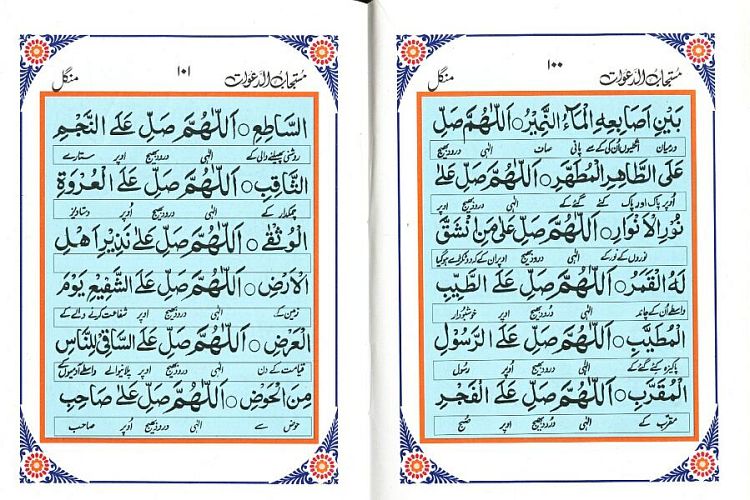 مستجاب الدعوات ۱۰۰ منگل
بَيْنِ اَصَابِعِهِ الْمَآءُ النَّمِيْرُ ○ اَللّٰهُمَّ صَلِّ
درمیان انگلیوں اُن کی کے سے پانی صاف الٰہی درود بھیج
عَلَى الطَّاهِرِ الْمُطَهَّرِ ○ اَللّٰهُمَّ صَلِّ عَلٰى
اُوپر پاک اور پاک کئے گئے کے الٰہی درود بھیج اوپر
نُوْرِ الْاَنْوَارِ ○ اَللّٰهُمَّ صَلِّ عَلٰى مَنِ انْشَقَّ
نوروں کے نور کے الٰہی درود بھیج اوپر ان کے کہ دو ٹکڑے ہو گیا
لَهُ الْقَمَرُ ○ اَللّٰهُمَّ صَلِّ عَلَى الطَّيِّبِ
واسطے اُن کے چاند الٰہی درُود بھیج اوپر خوشبودار
الْمُطَيَّبِ ○ اَللّٰهُمَّ صَلِّ عَلَى الرَّسُوْلِ
پاکیزہ کئے گئے کے الٰہی درود بھیج اُوپر رسول
الْمُقَرَّبِ ○ اَللّٰهُمَّ صَلِّ عَلَى الْفَجْرِ
مقرب کے الٰہی درود بھیج اوپر صبح
مستجاب الدعوات ۱۰۱ منگل
السَّاطِعِ ○ اَللّٰهُمَّ صَلِّ عَلَى النَّجْمِ
روشنی پھیلنے والی کے الٰہی درود بھیج اوپر ستارے
الثَّاقِبِ ○ اَللّٰهُمَّ صَلِّ عَلَى الْعُرْوَةِ
چمکدار کے الٰہی درود بھیج اُوپر دستاویز
الْوُثْقٰى ○ اَللّٰهُمَّ صَلِّ عَلٰى نَذِيْرِ اَهْلِ
الْاَرْضِ ○ اَللّٰهُمَّ صَلِّ عَلَى الشَّفِيْعِ يَوْمَ
زمین کے الٰہی درود بھیج اوپر شفاعت کرنے والے کے
الْعَرْضِ ○ اَللّٰهُمَّ صَلِّ عَلَى السَّاقِيْ لِلنَّاسِ
قیامت کے دن الٰہی درود بھیج اوپر پلانیوالے واسطے آدمیوں کے
مِنَ الْحَوْضِ ○ اَللّٰهُمَّ صَلِّ عَلٰى صَاحِبِ
حوض سے الٰہی درود بھیج اُوپر صاحب